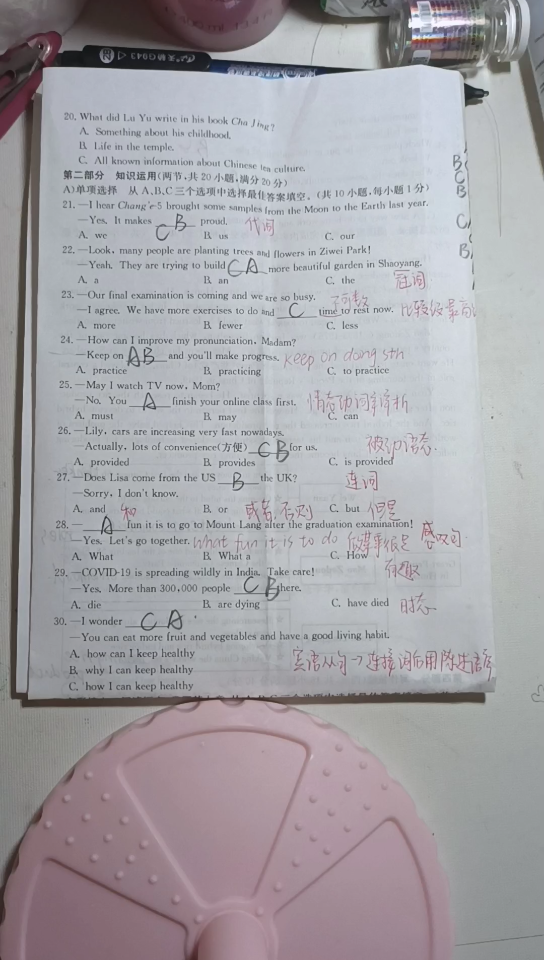 20. What did Lu Yu write in his book Cha Jing?
A. Something about his childhood.
B. Life in the temple.
C. All known information about Chinese tea culture.
第二部分 知识运用(两节,共20小题,满分20分)
A)单项选择 从A、B、C三个选项中选择最佳答案填空。(共10小题,每小题1分)
21. —I hear Chang'e-5 brought some samples from the Moon to the Earth last year.
—Yes. It makes C B proud. 代词
A. we B. us C. our
22. —Look, many people are planting trees and flowers in Ziwei Park!
—Yeah. They are trying to build C A more beautiful garden in Shaoyang.
A. a B. an C. the 冠词
23. —Our final examination is coming and we are so busy. 不可数
—I agree. We have more exercises to do and C time to rest now. 比较级最高
A. more B. fewer C. less
24. —How can I improve my pronunciation, Madam?
—Keep on A B and you'll make progress. keep on doing sth
A. practice B. practicing C. to practice
25. —May I watch TV now, Mom?
—No. You A finish your online class first. 情态动词辨析
A. must B. may C. can
26. —Lily, cars are increasing very fast nowadays.
—Actually, lots of convenience(方便) C B for us. 被动语态.
A. provided B. provides C. is provided
27. —Does Lisa come from the US B the UK? 连词
—Sorry, I don't know.
A. and 和 B. or 或者,否则 C. but 但是
28. — A fun it is to go to Mount Lang after the graduation examination! 感叹句
—Yes. Let's go together. What fun it is to do 做某事很是
A. What B. What a C. How 有趣
29. —COVID-19 is spreading wildly in India. Take care!
—Yes. More than 300,000 people C B there.
A. die B. are dying C. have died 时态
30. —I wonder C A .
—You can eat more fruit and vegetables and have a good living habit.
A. how can I keep healthy
B. why I can keep healthy 宾语从句→连接词后用陈述语序
C. how I can keep healthy